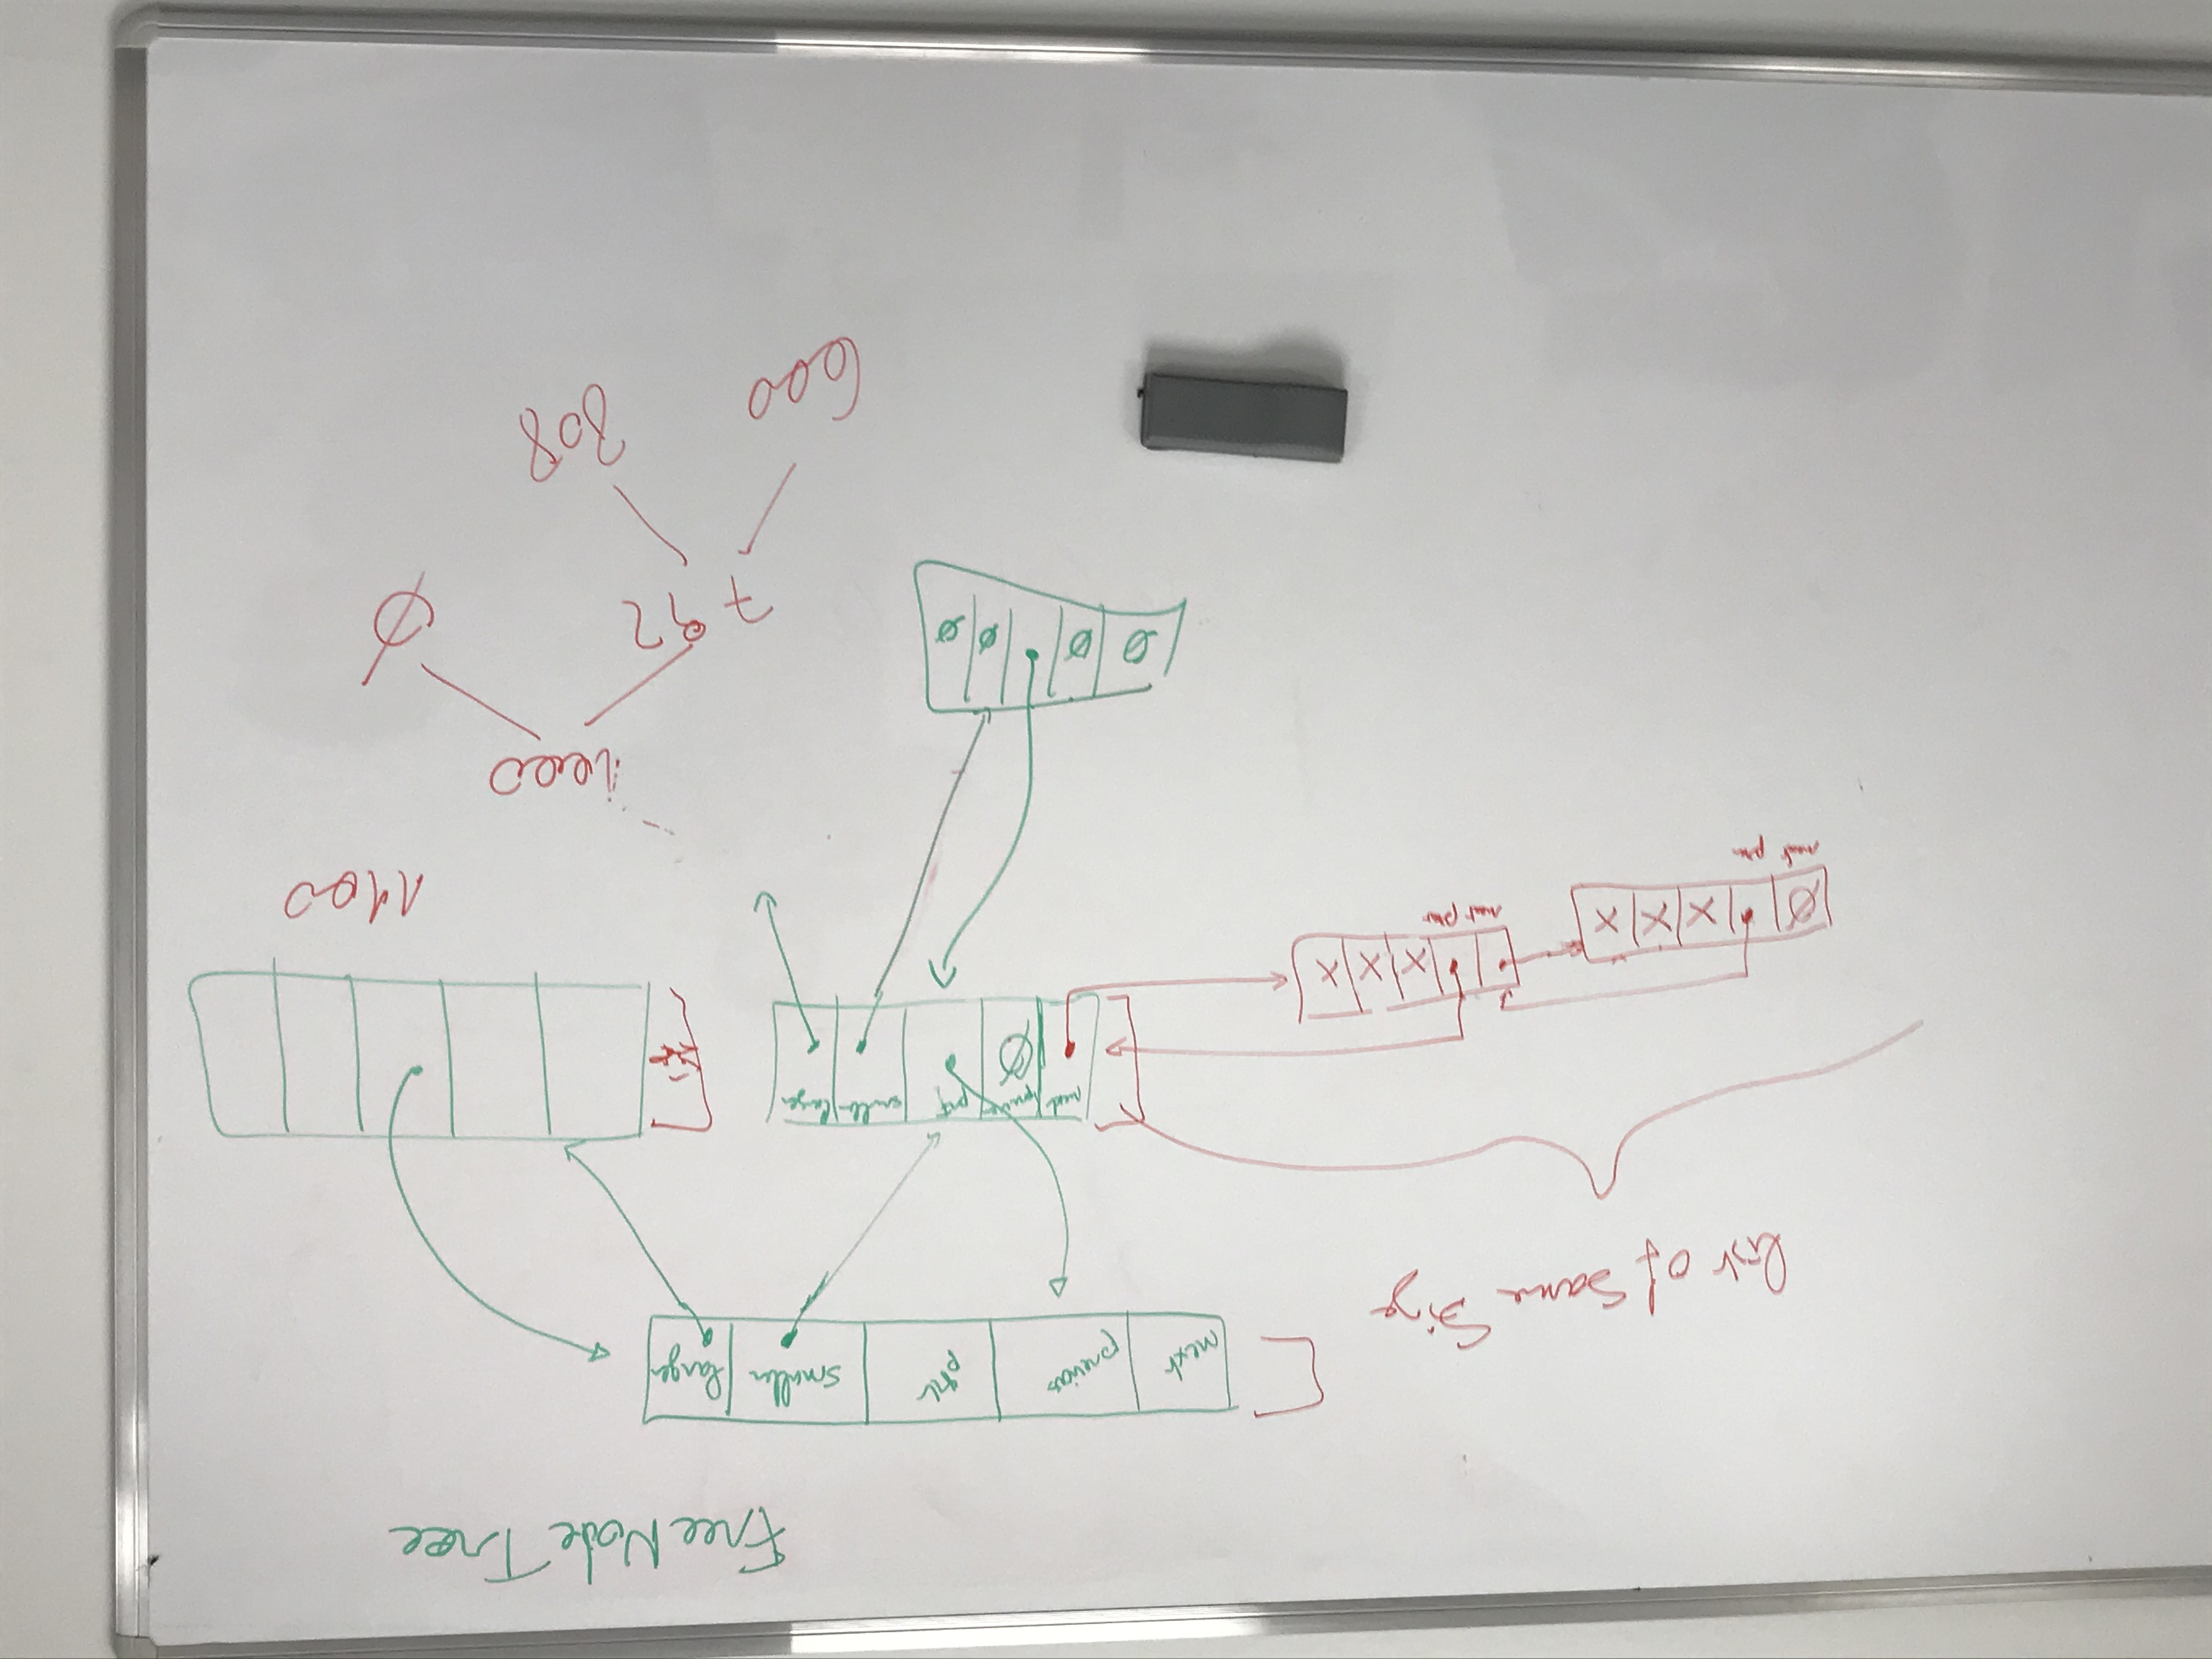 Free Node Tree
next previous smaller larger
list of Same Size
next smaller larger
Ø
X X X
next prev
Ø X X X
next prev
1100
Ø Ø Ø Ø
1000
792 Ø
600 808